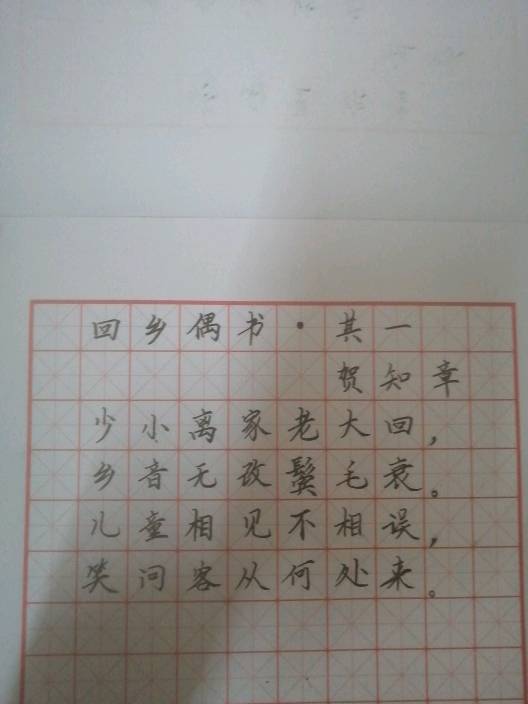 回乡偶书·其一
贺知章
少小离家老大回，
乡音无改鬓毛衰。
儿童相见不相误，
笑问客从何处来。